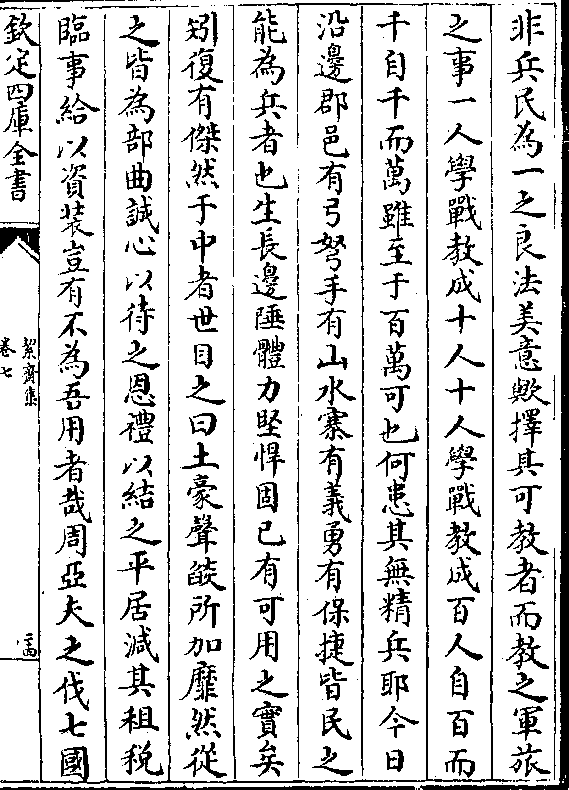 非兵民為一之良法美意歟擇其可教者而教之軍旅
之事一人學戰教成十人十人學戰教成百人自百而
千自千而萬雖至于百萬可也何患其無精兵耶今日
沿邊郡邑有弓弩手有山水寨有義勇有保捷皆民之
能為兵者也生長邊陲體力堅悍固已有可用之實矣
矧復有傑然于中者世目之曰土豪聲燄所加靡然從
之皆為部曲誠心以待之恩禮以結之平居減其租税
臨事給以資装豈有不為吾用者哉周亞夫之伐七國
欽定四庫全書
絜齋集
卷七